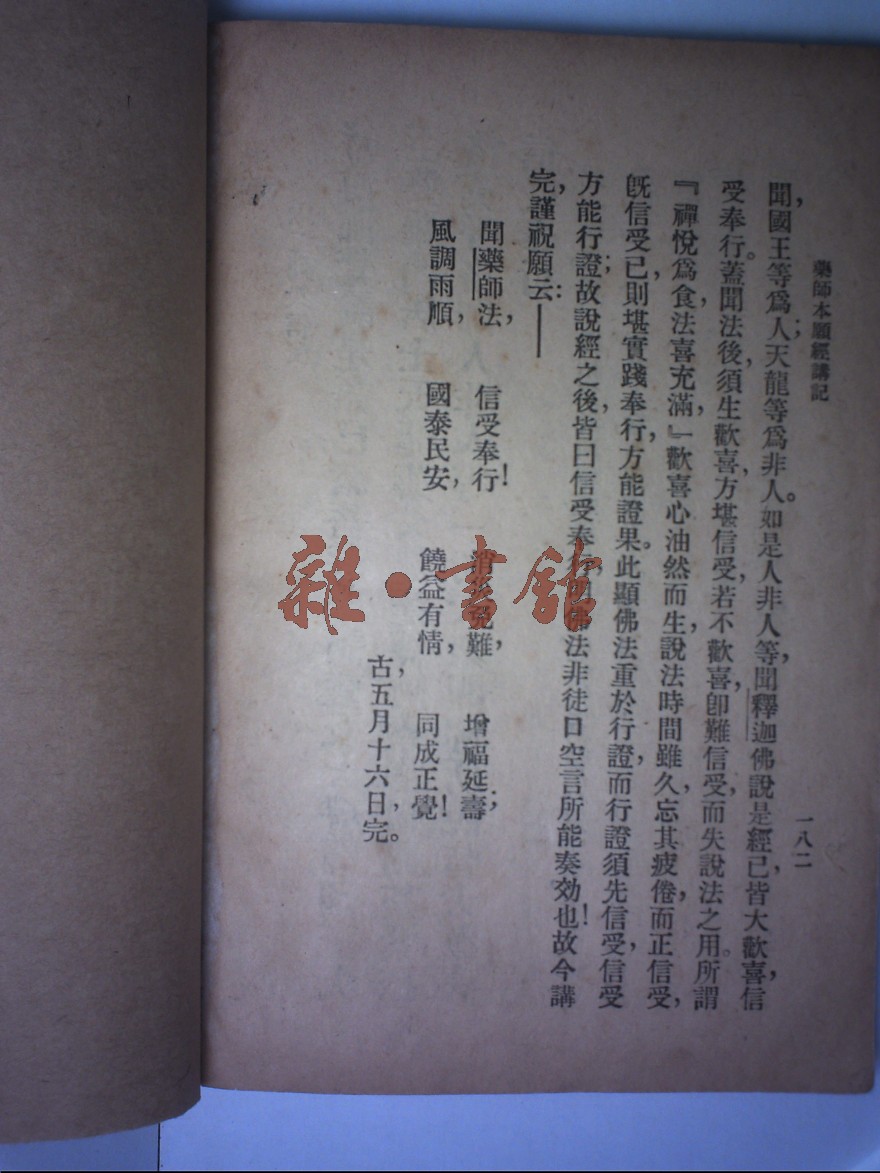 藥師本願經講記
一八二
聞，國王等爲人；天龍等爲非人。如是人非人等，聞釋迦佛說是經已，皆大歡喜，信
受奉行。蓋聞法後，須生歡喜，方堪信受，若不歡喜，卽難信受，而失說法之用。所謂
『禪悅爲食，法喜充滿，』歡喜心油然而生，說法時間雖久，忘其疲倦，而正信受，
旣信受已，則堪實踐奉行，方能證果。此顯佛法重於行證，而行證須先信受，信受
方能行證；故說經之後，皆曰信受奉行，佛法非徒口空言所能奏効也！故今講
完，謹祝願云：——
聞藥師法，信受奉行！消災免難，增福延壽；
風調雨順，國泰民安，饒益有情，同成正覺！
古，五月十六日，完。
雜·書館